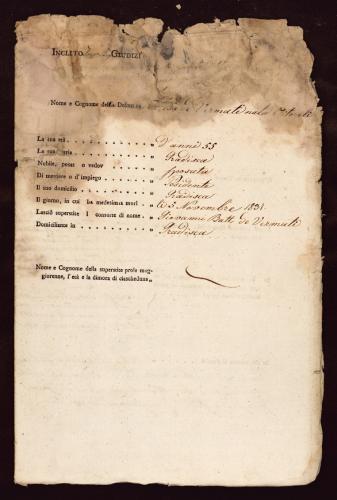 INCLITO GIUDIZI
Nome e Cognome della Defunta de Vermati nata
La sua età . . . . . . . . . „ D'anni 55
La sua patria . . . . . . . . . „ Gradisca
Nobile, possi o vedov . . . . . . „ Sposata
Di mestiere o d'impiego . . . . . . „ Possidente
Il suo domicilio . . . . . . . . . „ Gradisca
Il giorno, in cui la medesima morì . . „ li 5 Novembre 1831
Lasciò superstite il consorte di nome, . . „ Giovanni Batt. de Vermati
Domiciliante in . . . . . . . . . „ Gradisca
Nome e Cognome della superstite prole mag-
giorenne, l'età e la dimora di ciascheduno „